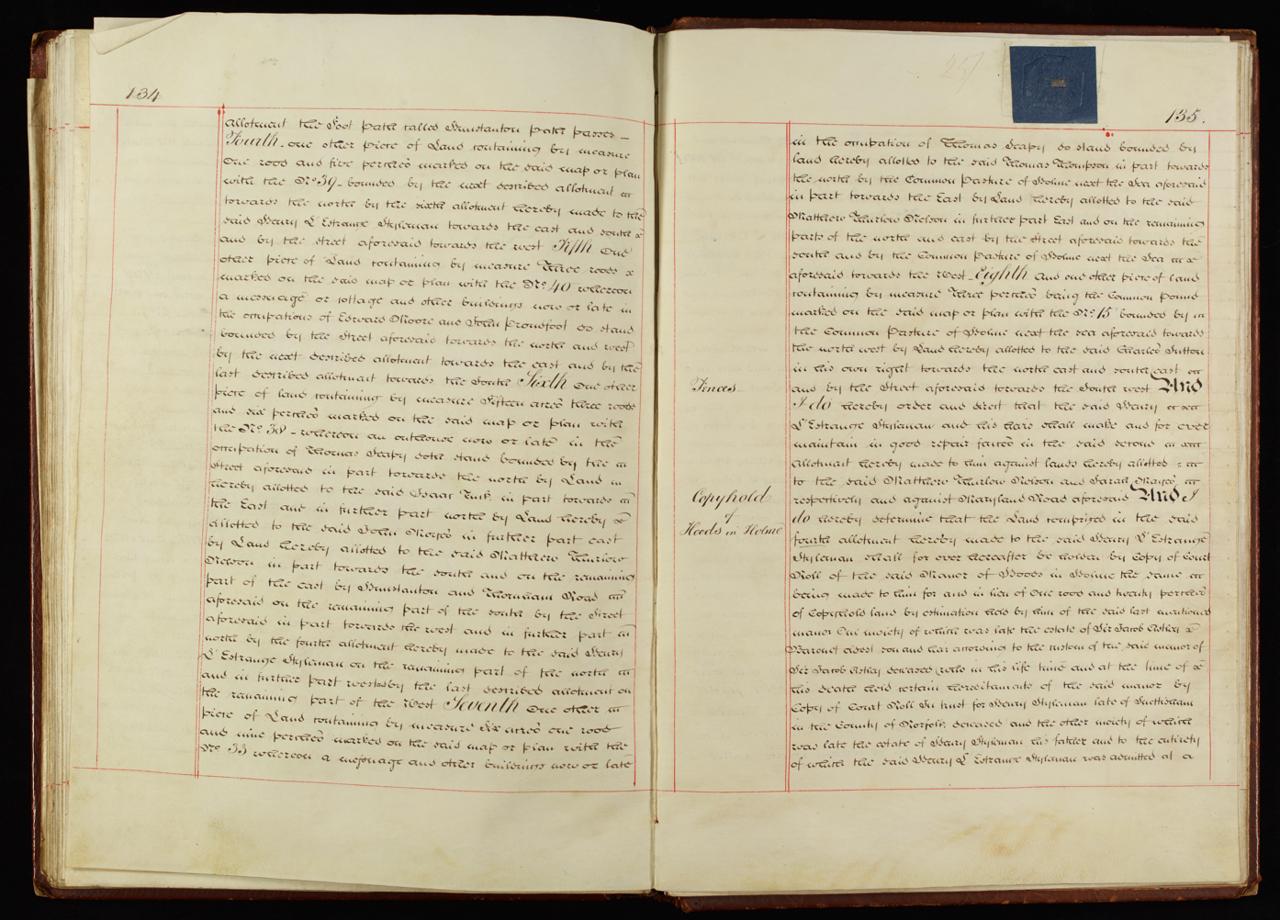 134
allotment the Foot path called Hunstanton path passes –
Fourth – one other piece of Land containing by measure
One rood and five perches marked on the said map or plan
with the No 39 – bounded by the next described allotment
towards the north by the sixth allotment hereby made to the
said Henry L'Estrange Styleman towards the east and south &
and by the street aforesaid towards the west Fifth One
other piece of Land containing by measure Three roods &
marked on the said map or plan with the No 40 whereon
a messuage or cottage and other buildings now or late in
the occupations of Edward Moore and John Proudfoot do stand
bounded by the street aforesaid towards the north and west
by the next described allotment towards the east and by the
last described allotment towards the South Sixth One other
piece of land containing by measure Fifteen acres three roods
and six perches marked on the said map or plan with
the No 38 – whereon an outhouse now or late in the
occupation of Thomas Seapy doth stand bounded by the
Street aforesaid in part towards the north by Land
hereby allotted to the said Isaac in part towards
the East and in further part north by Land hereby &
allotted to the said John in further part east
by Land hereby allotted to the said Matthew Thurlow
Nelson in part towards the south and on the remaining
part of the east by Hunstanton and Thornham Road
aforesaid on the remaining part of the south by the Street
aforesaid in part towards the west and in further part
north by the fourth allotment hereby made to the said Henry
L'Estrange Styleman on the remaining part of the north
and in further part west by the last described allotment on
the remaining part of the West Seventh One other
piece of Land containing by measure Six acres one rood
and nine perches marked on the said map or plan with the
No 33 whereon a messuage and other buildings now or late
135.
in the occupation of Thomas Seapy do stand bounded by
land hereby allotted to the said Thomas Thompson in part towards
the north by the Common Pasture of Holme next the Sea aforesaid
in part towards the East by Land hereby allotted to the said
Matthew Thurlow Nelson in further part East and on the remaining
parts of the north and east by the Street aforesaid towards the
south and by the Common Pasture of Holme next the Sea
aforesaid towards the West Eighth And one other piece of land
containing by measure Three perches being the Common Pound
marked on the said map or plan with the No 15 bounded by
the Common Pasture of Holme next the sea aforesaid towards
the north west by Land hereby allotted to the said Charles Sutton
in his own right towards the north east and south east
and by the Street aforesaid towards the South west And
Fences
I do hereby order and direct that the said Henry
L'Estrange Styleman and his heirs shall make and for ever
maintain in good repair fences in the said second
allotment hereby made to him against lands hereby allotted
to the said Matthew Thurlow Nelson and Sarah
respectively and against Maryland Road aforesaid And I
Copyhold
of
Hoods in Holme
do hereby determine that the Land comprized in the said
fourth allotment hereby made to the said Henry L'Estrange
Styleman shall for ever hereafter be holden by Copy of Court
Roll of the said Manor of Hoods in Holme the same
being made to him for and in lieu of One rood and twenty perches
of Copyhold land by estimation held by him of the said last mentioned
manor One moiety of which was late the estate of Sir Jacob Astley &
Baronet eldest son and heir according to the custom of the said manor of
Sir Jacob Astley deceased who in his life time and at the time of &
his death held certain hereditaments of the said manor by
Copy of Court Roll In trust for Henry Styleman late of Snettisham
in the County of Norfolk deceased and the other moiety of which
was late the estate of Henry Styleman his father and to the entirety
of which the said Henry L'Estrange Styleman was admitted at a